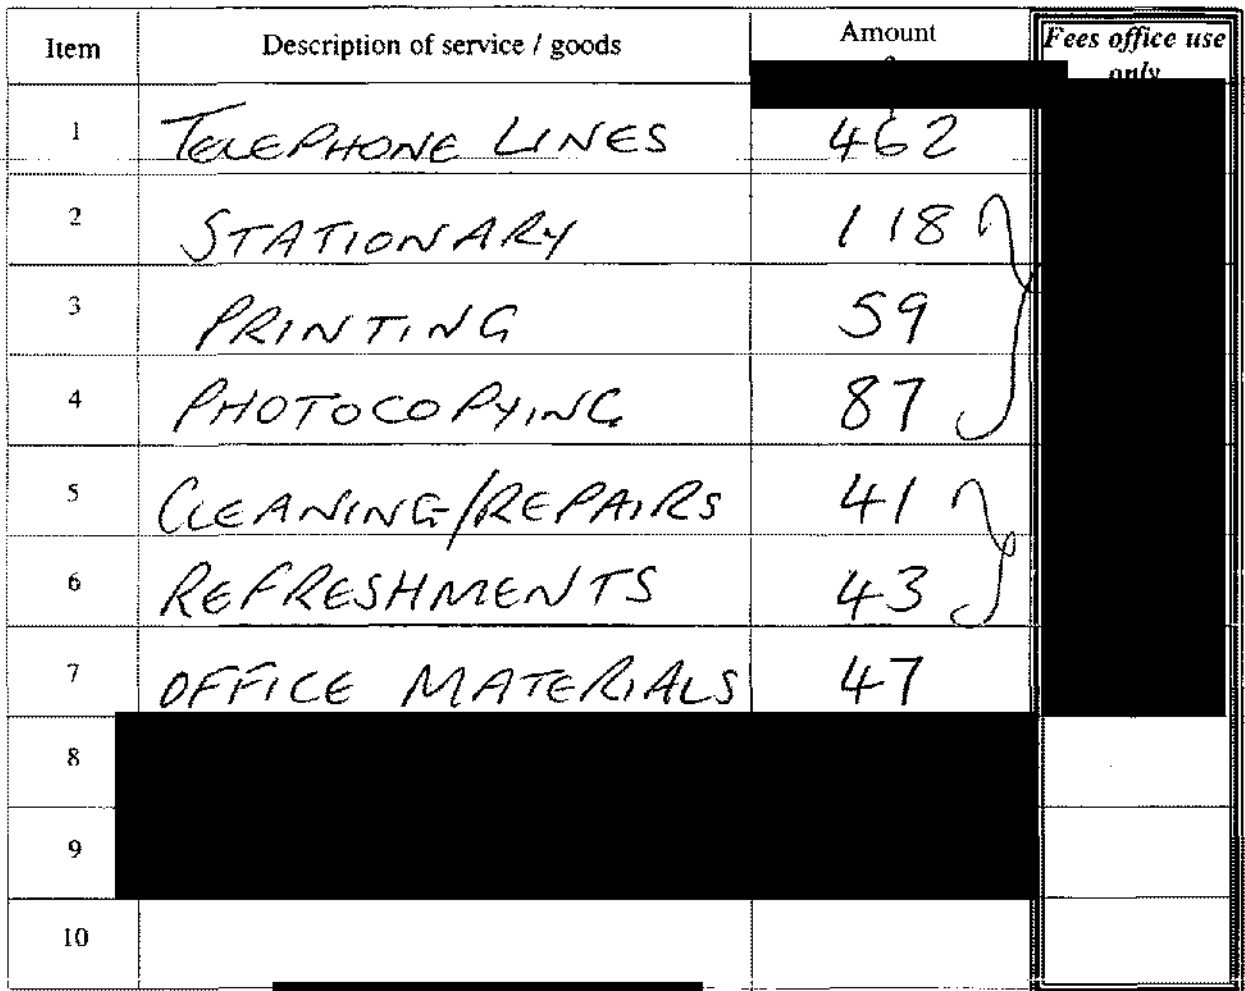 Item Description of service / goods Amount Fees office use
only
1 TELEPHONE LINES 462
2 STATIONARY 118
3 PRINTING 59
4 PHOTOCOPYING 87
5 CLEANING/REPAIRS 41
6 REFRESHMENTS 43
7 OFFICE MATERIALS 47
8
9
10